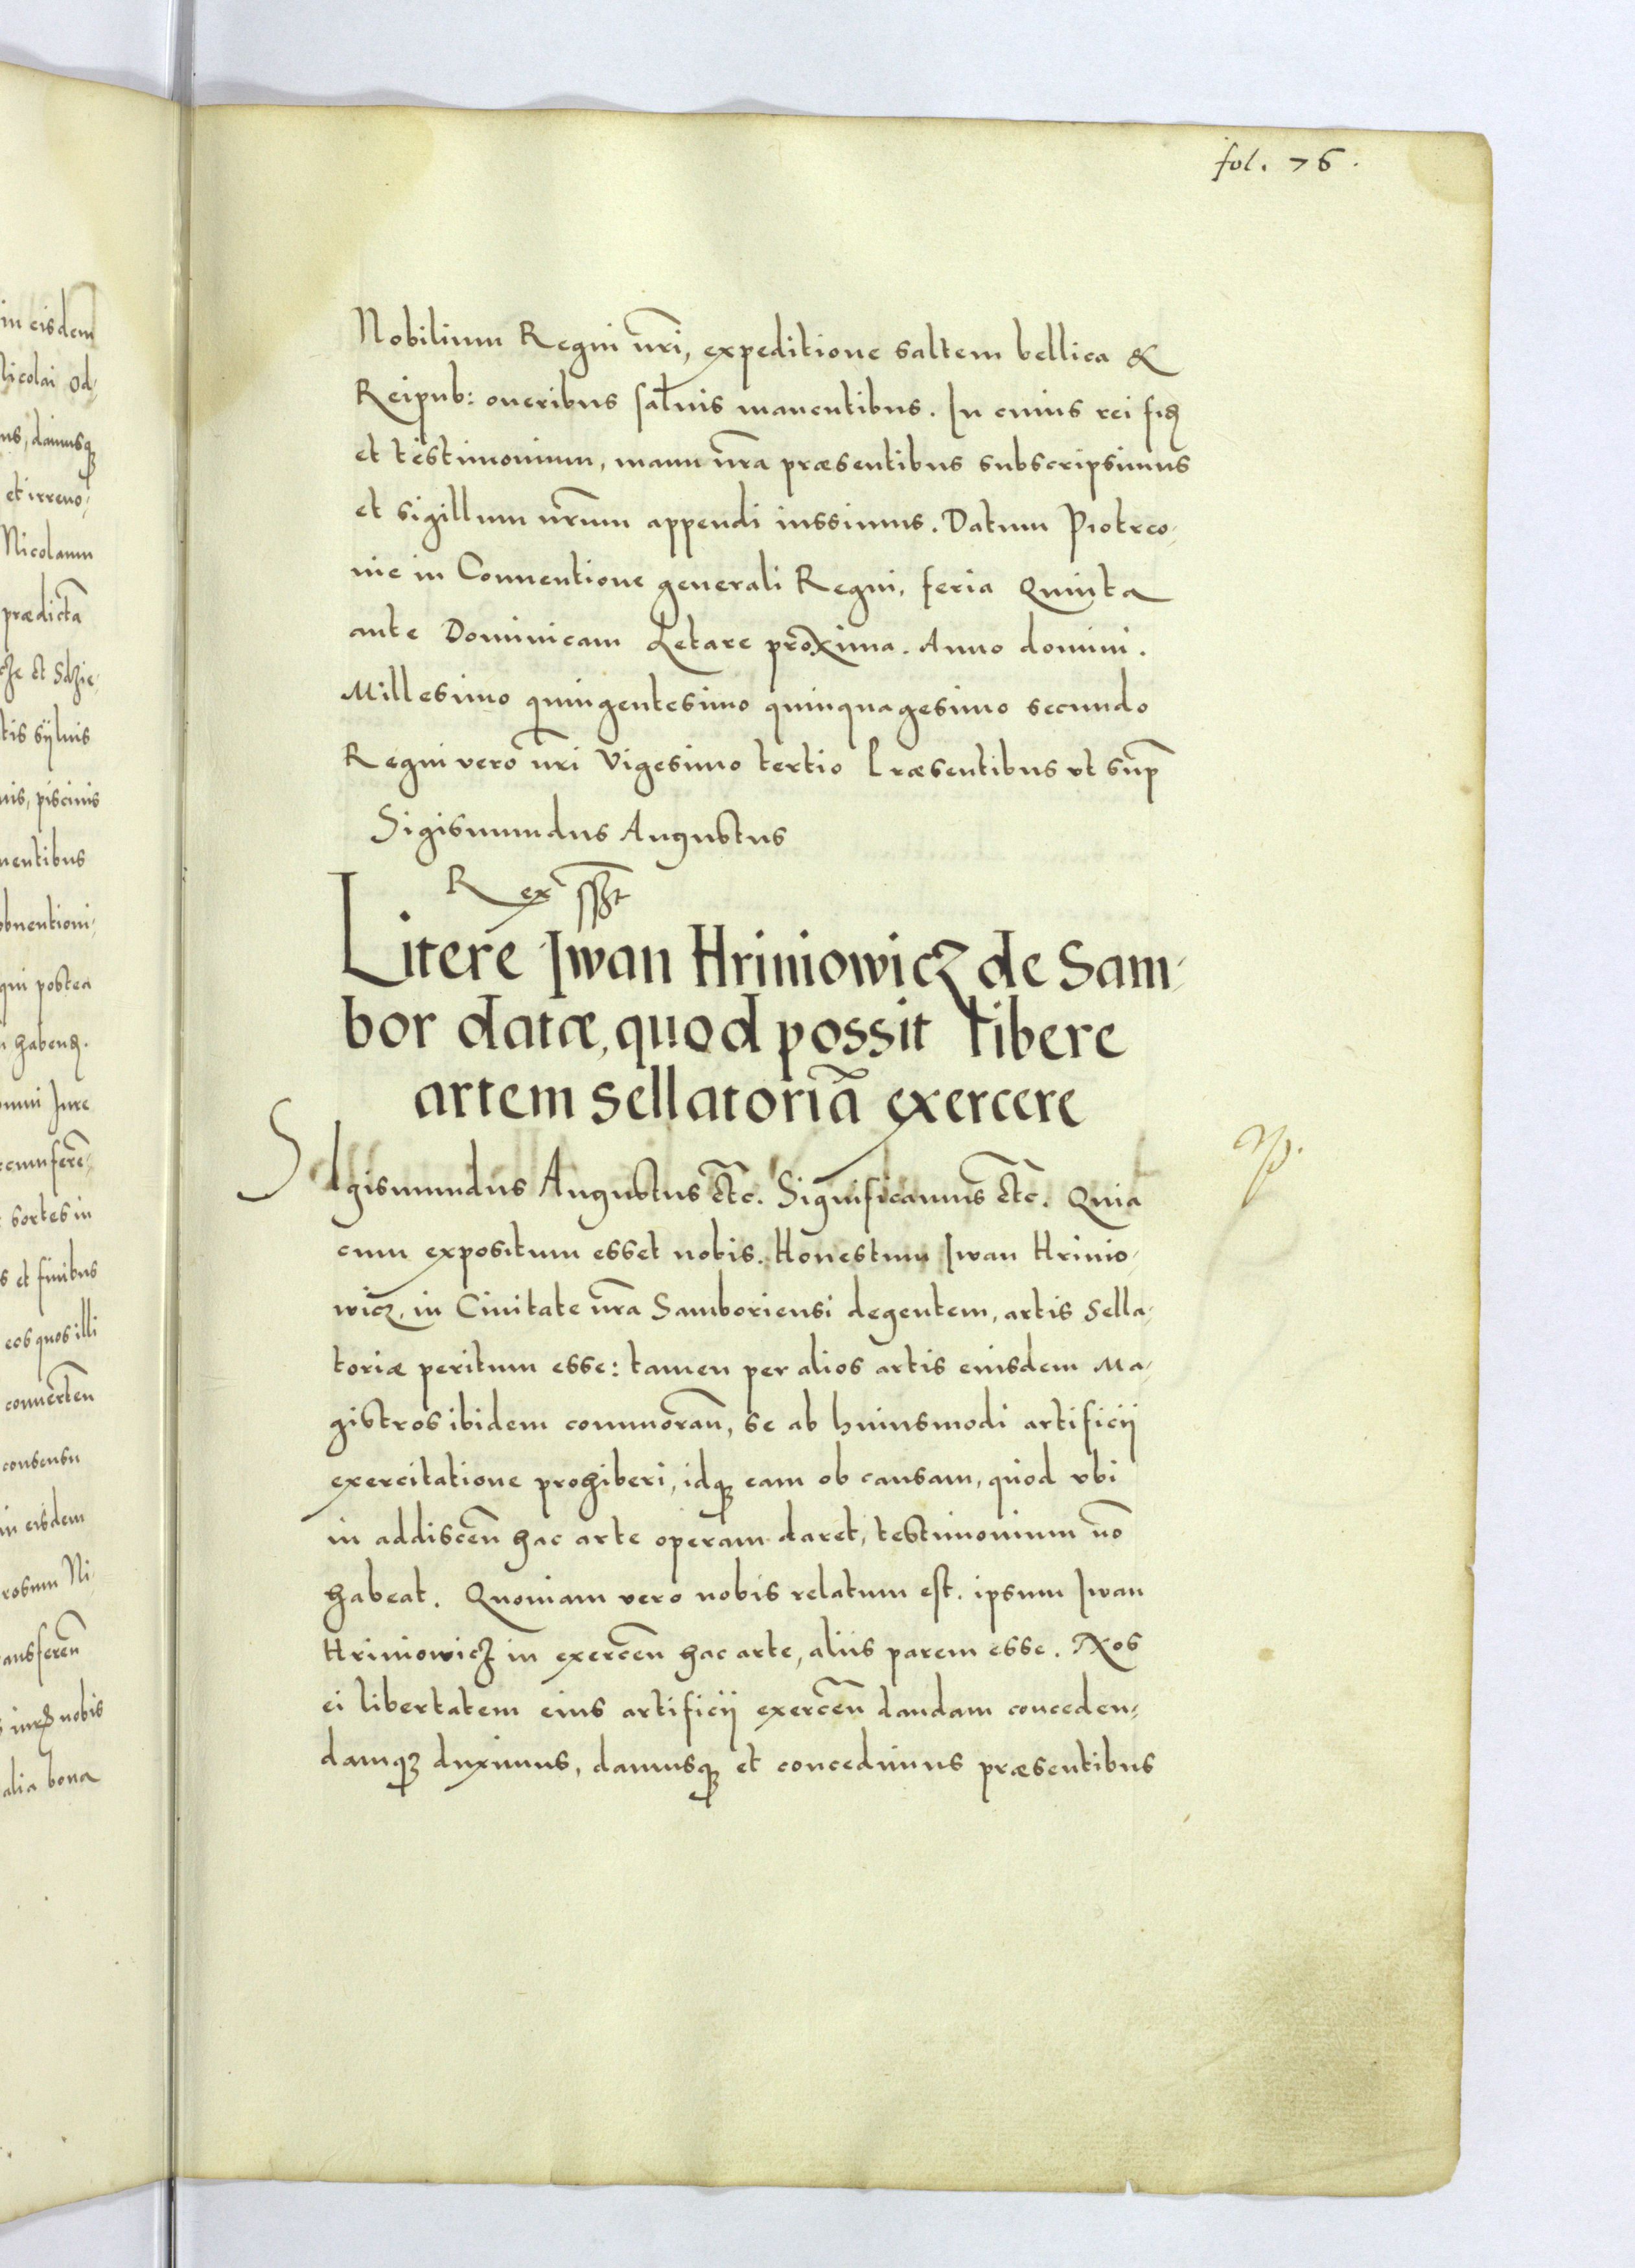 fol. 76.
Nobilium Regni nr̃i, expeditione saltem bellica &
Reipub: oneribus saluis manentibus. In cuius rei fidẽ
et testimonium, manu nr̃a præsentibus subscripsimus
et sigillum nr̃um appendi iussimus. Datum Piotrco-
nie in Conuentione generali Regni, feria Quinta
ante Dominicam Letare proxima. Anno domini.
Millesimo quingentesimo quinquagesimo secundo
Regni vero nr̃i Vigesimo tertio Præsentibus vt sup
Sigismundus Augustus
Rex sspt
Litere Iwan Hriniowicz de Sam-
bor datæ, quod possit libere
artem sellatoriã exercere
SIgismundus Augustus etc̃. Significamus etc̃. Quia
cum expositum esset nobis. Honestum Iwan Hrinio-
wicz, in Ciuitate nr̃a Samboriensi degentem, artis Sella-
toriæ peritum esse: tamen per alios artis eiusdem Ma-
gistros ibidem commorañ, se ab huiusmodi artificij
exercitatione prohiberi, idq; eam ob causam, quod vbi
in addisceñ hac arte operam daret, testimonium nõ
habeat. Quoniam vero nobis relatum est. ipsum Iwan
Hriniowicz in exerceñ hac arte, aliis parem esse. Nos
ei libertatem eius artificij exerceñ dandam conceden-
damq; duximus, damusq; et concedimus præsentibus
in eisdem
Nicolai Od-
ns, damusq;
et irreuo-
Nicolaum
prædicta
cze et Sdzie-
tis syluis
nis, piscinis
nentibus
obuentioni-
qui postea
habeñ.
omni Jure
rcumferẽ-
sortes in
s et finibus
eos quos illi
conuerteñ
consensu
in eisdem
rosum Ni-
ansfereñ
nobis
alia bona